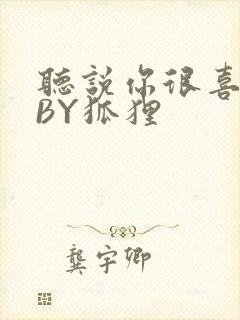 聽說你很喜
BY狐狸
龔宇卿